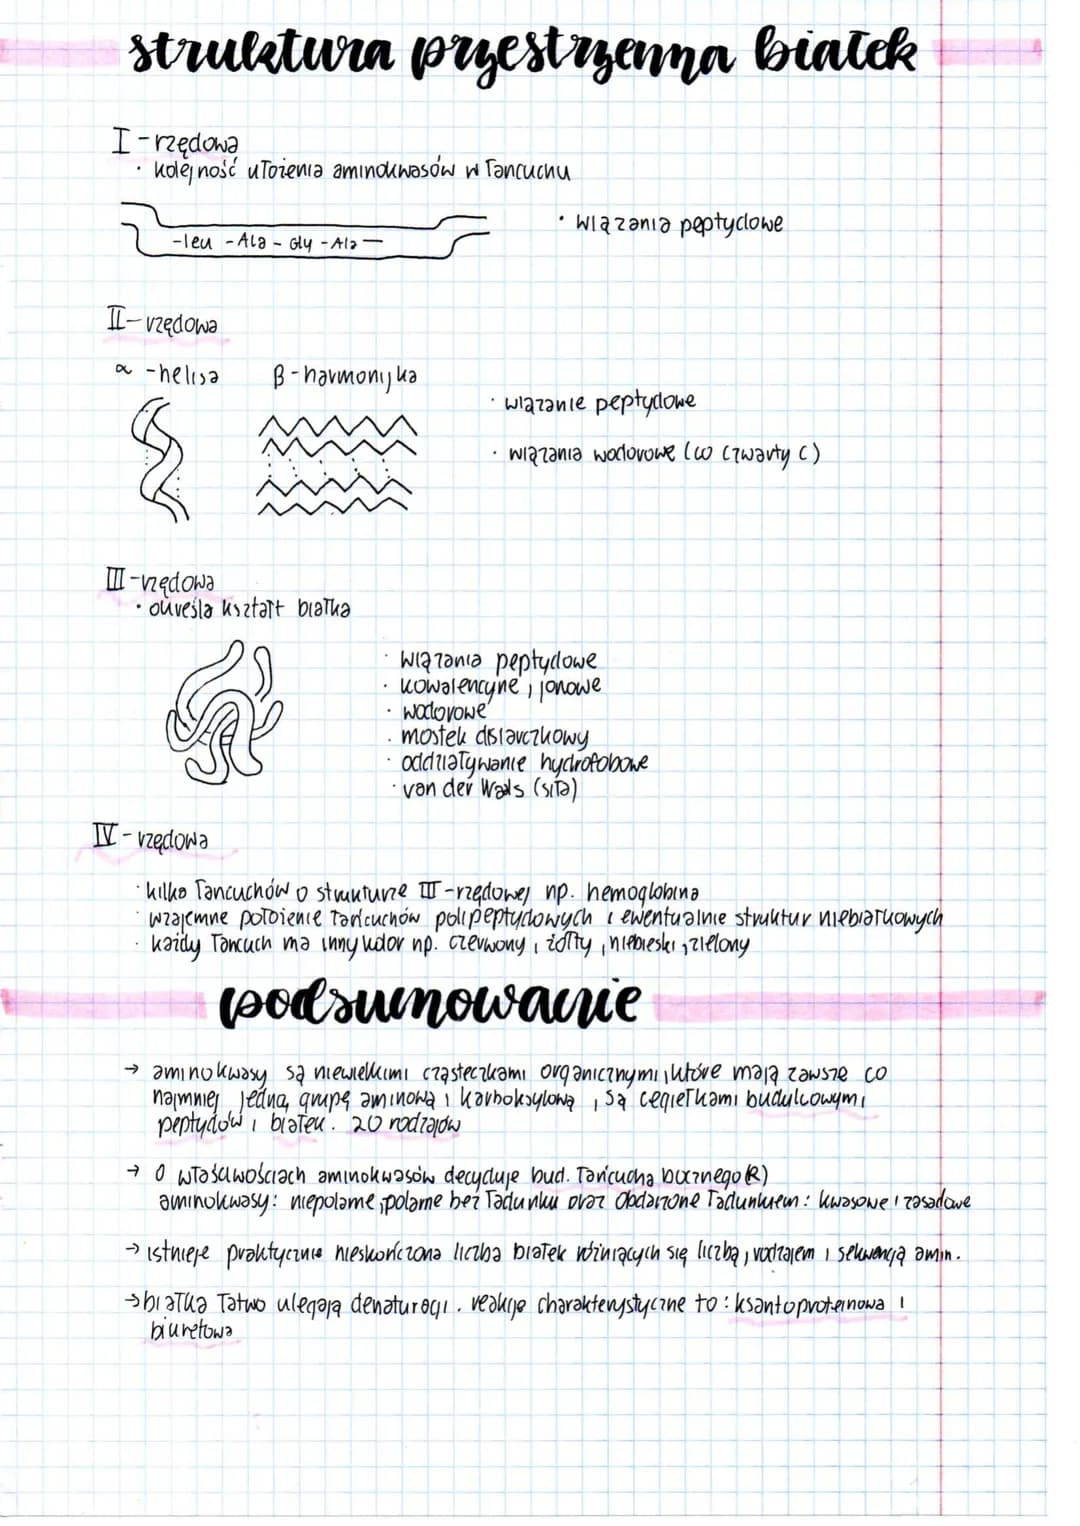 struktura przestrzenna białek
I - rzędowa
· kolejność ułożenia aminokwasów w łańcuchu
-leu - Ala - Gly - Ala -
· wiązania peptydowe
II - rzędowa
α - helisa
β - harmonijka
· wiązanie peptydowe
· wiązania wodorowe (co czwarty C)
III - rzędowa
· określa kształt białka
· wiązania peptydowe
· kowalencyjne, jonowe
· wodorowe
· mostek disiarczkowy
· oddziaływanie hydrofobowe
· van der Waals (siła)
IV - rzędowa
· kilka łańcuchów o strukturze III - rzędowej np. hemoglobina
· wzajemne położenie łańcuchów polipeptydowych i ewentualnie struktur niebiałkowych
· każdy łańcuch ma inny kolor np. czerwony, żółty, niebieski, zielony
podsumowanie
→ aminokwasy są niewielkimi cząsteczkami organicznymi, które mają zawsze co
najmniej jedną grupę aminową i karboksylową, są cegiełkami budulcowymi
peptydów i białek. 20 rodzajów
→ O właściwościach aminokwasów decyduje bud. łańcucha bocznego (R)
aminokwasy: niepolarne, polarne bez ładunku oraz obdarzone ładunkiem: kwasowe i zasadowe
→ istnieje praktycznie nieskończona liczba białek różniących się liczbą, rodzajem i sekwencją amin.
→ białka łatwo ulegają denaturacji. reakcje charakterystyczne to: ksantoproteinowa i
biuretowa